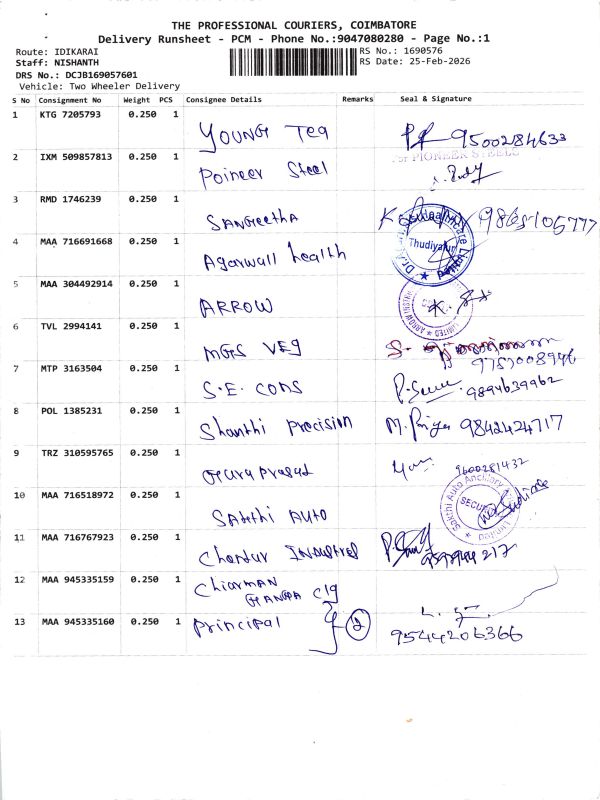 THE PROFESSIONAL COURIERS, COIMBATORE
Delivery Runsheet - PCM - Phone No.:9047080280 - Page No.:1
Route: IDIKARAI
RS No.: 1690576
Staff: NISHANTH
RS Date: 25-Feb-2026
DRS No.: DCJB169057601
Vehicle: Two Wheeler Delivery
S No Consignment No Weight PCS Consignee Details Remarks Seal & Signature
1 KTG 7205793 0.250 1
YOUNG Tea 9500284633
2 IXM 509857813 0.250 1
for PIONEER STEELS
Poineer Steel
3 RMD 1746239 0.250 1
SANGEETHA 9865105777
4 MAA 716691668 0.250 1
Thudiyalur
Agarwall health
5 MAA 304492914 0.250 1
ARROW
6 TVL 2994141 0.250 1
MGS VEG
9757008946
7 MTP 3163504 0.250 1
S.E. CONS 9894639962
8 POL 1385231 0.250 1
Shanthi Precision M. Priya 9842424717
9 TRZ 310595765 0.250 1
9600281432
Guru Prasad
10 MAA 716518972 0.250 1
Sakthi Auto Ancillary Limited
SECURITY
Sakthi AUTO
11 MAA 716767923 0.250 1
Industrial
12 MAA 945335159 0.250 1
Chiarman
GANGA Clg
13 MAA 945335160 0.250 1
Principal 2
9544206366